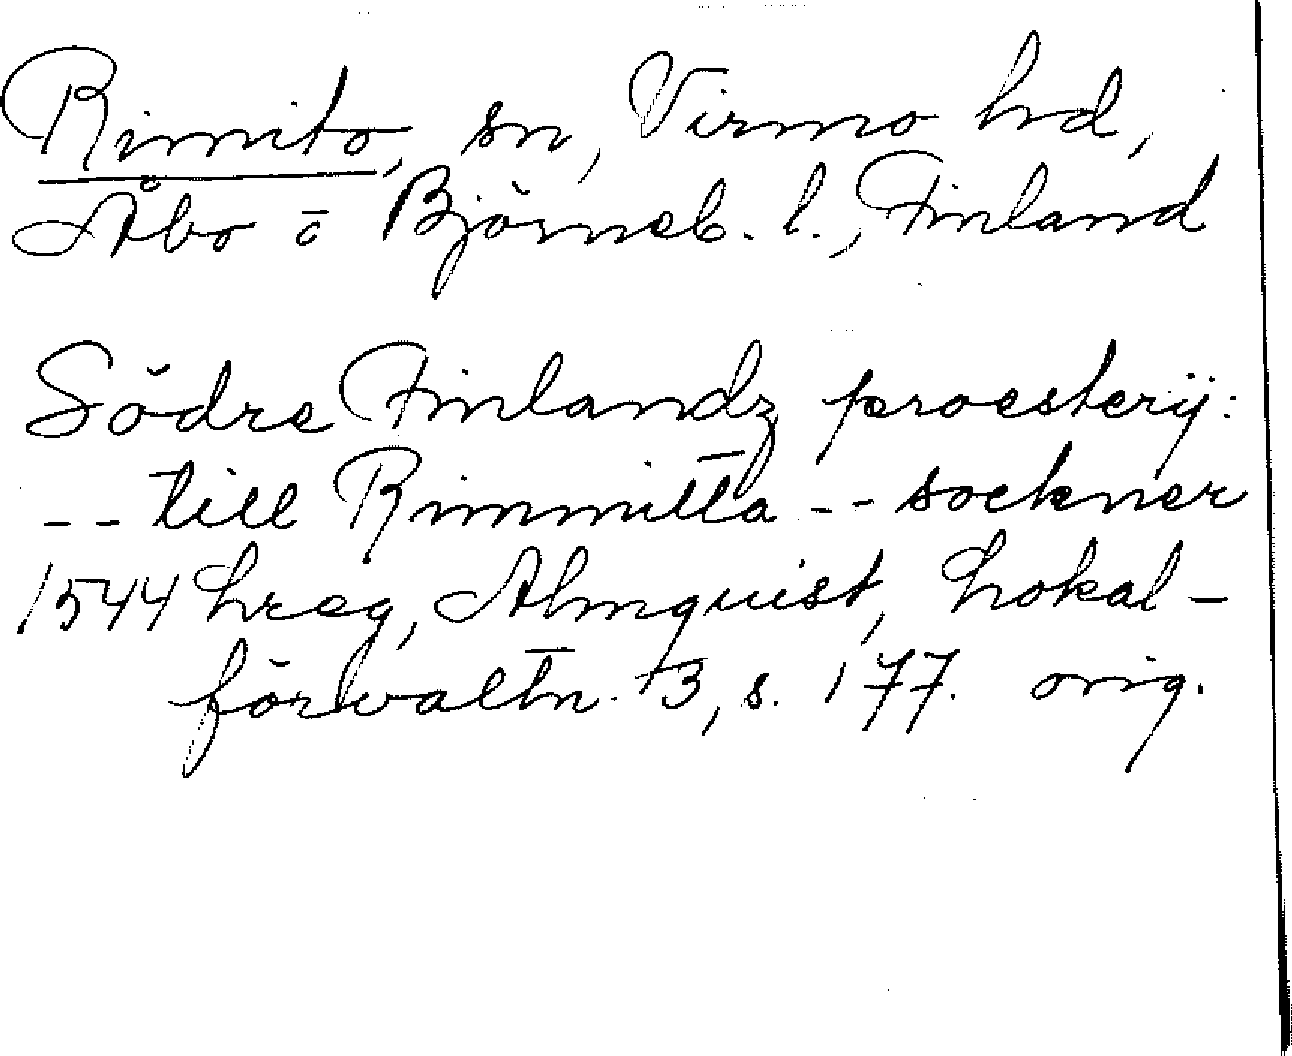 Rimito, sn, Virmo hd,
Åbo o Björneb. l., Finland
Södre Finlandz proesterij:
-- till Rimmitta -- sockner
1544 hreg, Almquist, Lokal-
förvaltn. 3, s. 177. orig.